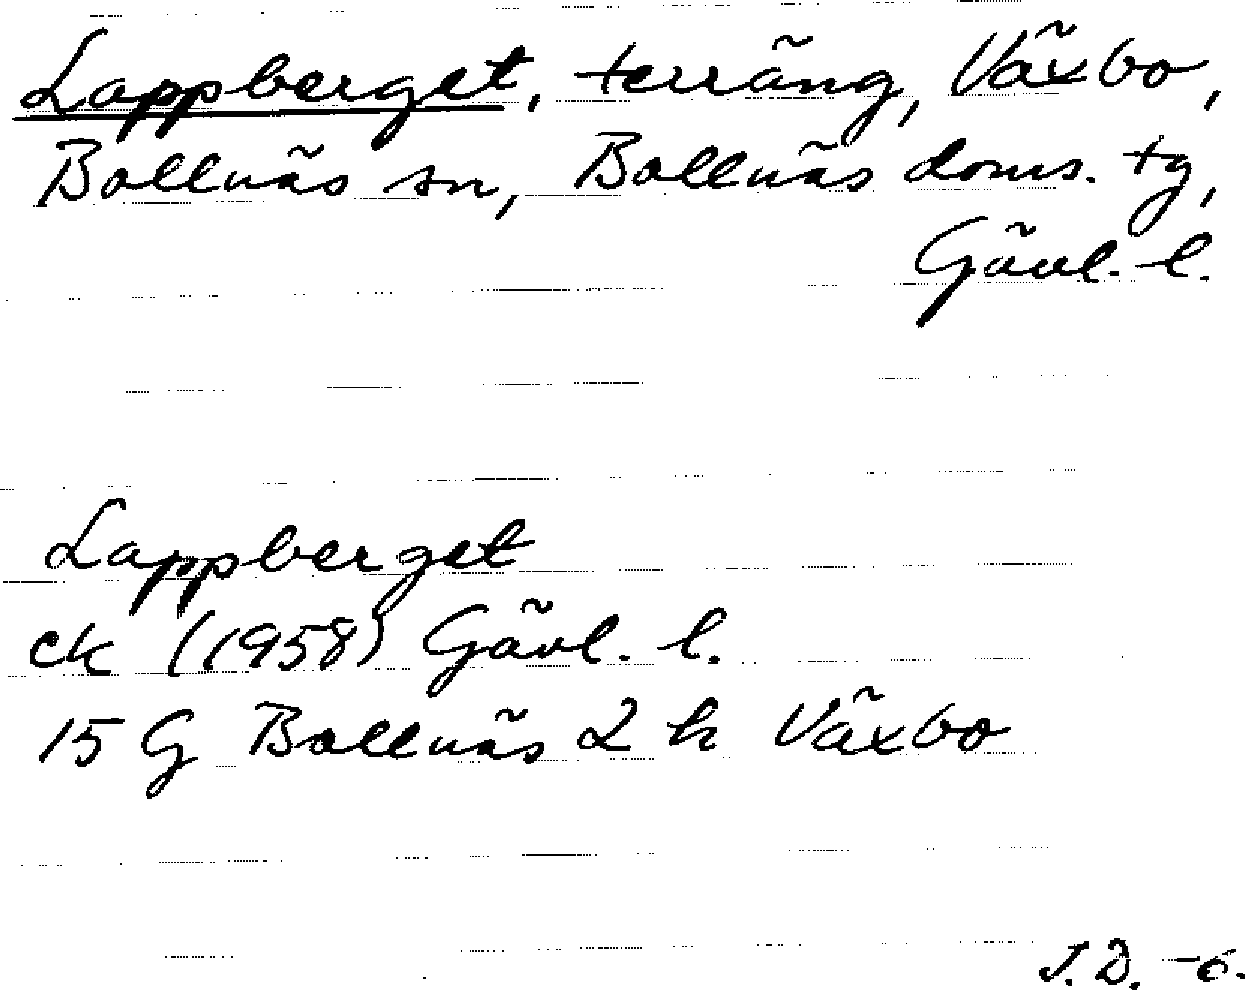 Lappberget, terräng, Växbo,
Bollnäs sn, Bollnäs doms. tg,
Gävl. l.
Lappberget
ek (1958) Gävl. l.
15 G Bollnäs 2 h Växbo
J.D. -6.